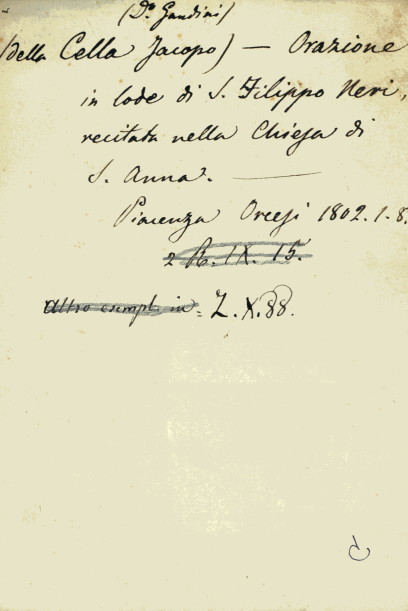 (D.º Gandini)
(della Cella Jacopo) — Orazione
in lode di S. Filippo Neri,
recitata nella Chiesa di
S. Anna. —
Piacenza Orcesi 1802. 1. 8.
2 R. IX. 15.
Altro esempl. in = Z. X. 88.